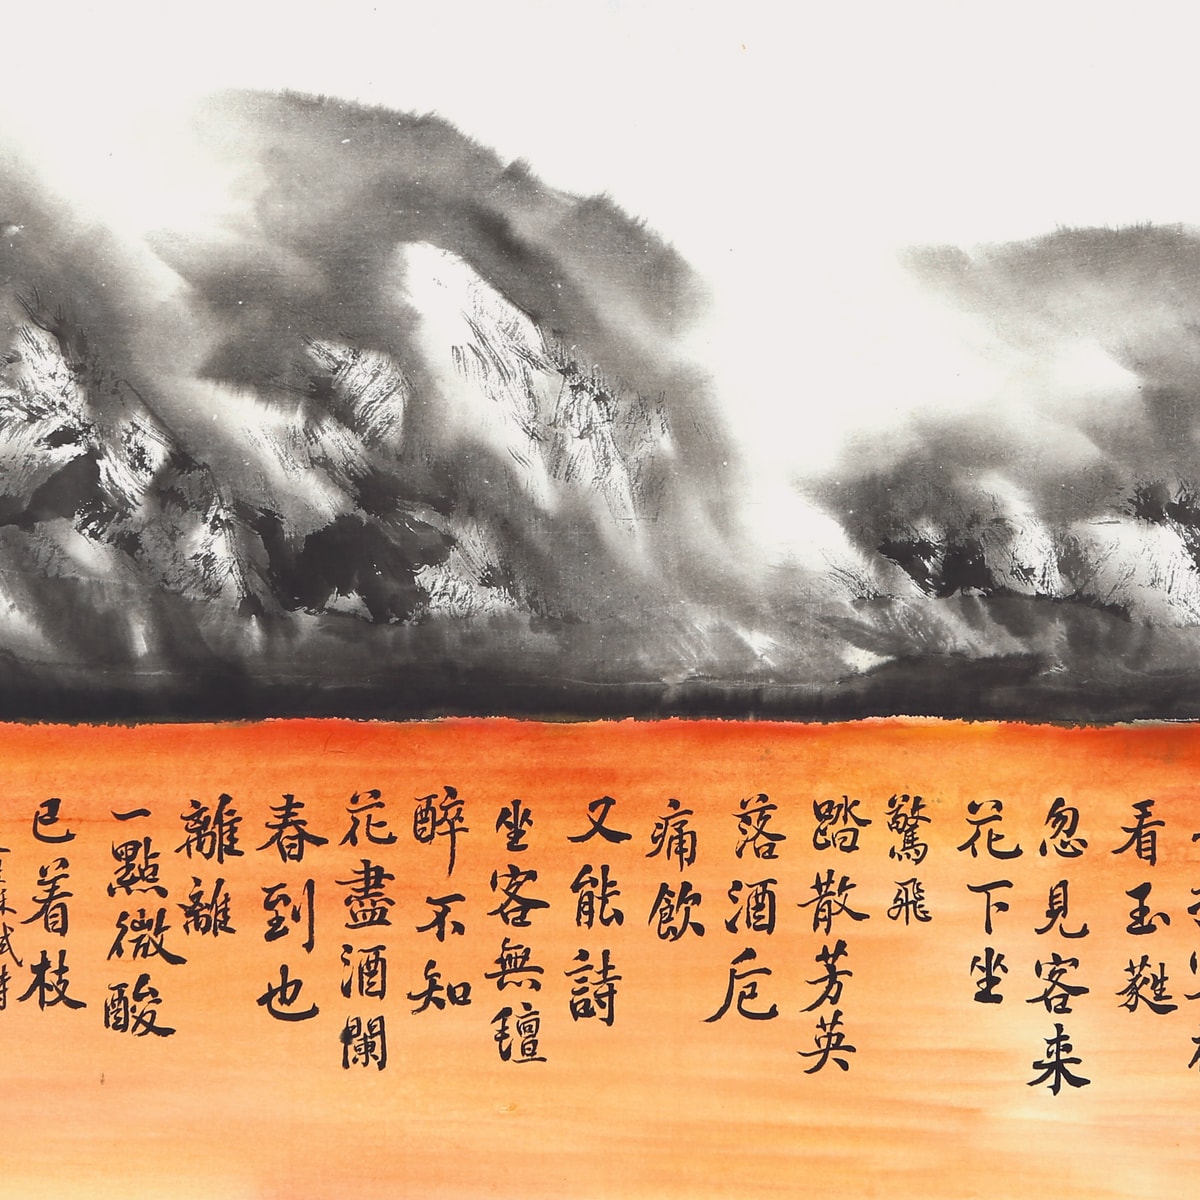 看玉蕤
忽見客来
花下坐
驚飛
踏散芳英
落酒卮
痛飲
又能詩
坐客無氊
醉不知
花盡酒闌
春到也
離離
一點微酸
已着枝